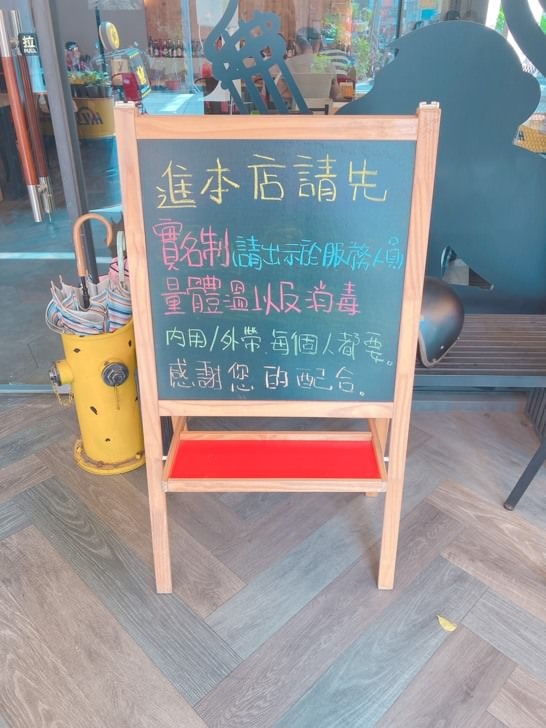 拉
PULL
進本店請先
實名制請出示於服務人員
量體溫以及消毒
內用/外帶.每個人都要。
感謝您的配合。